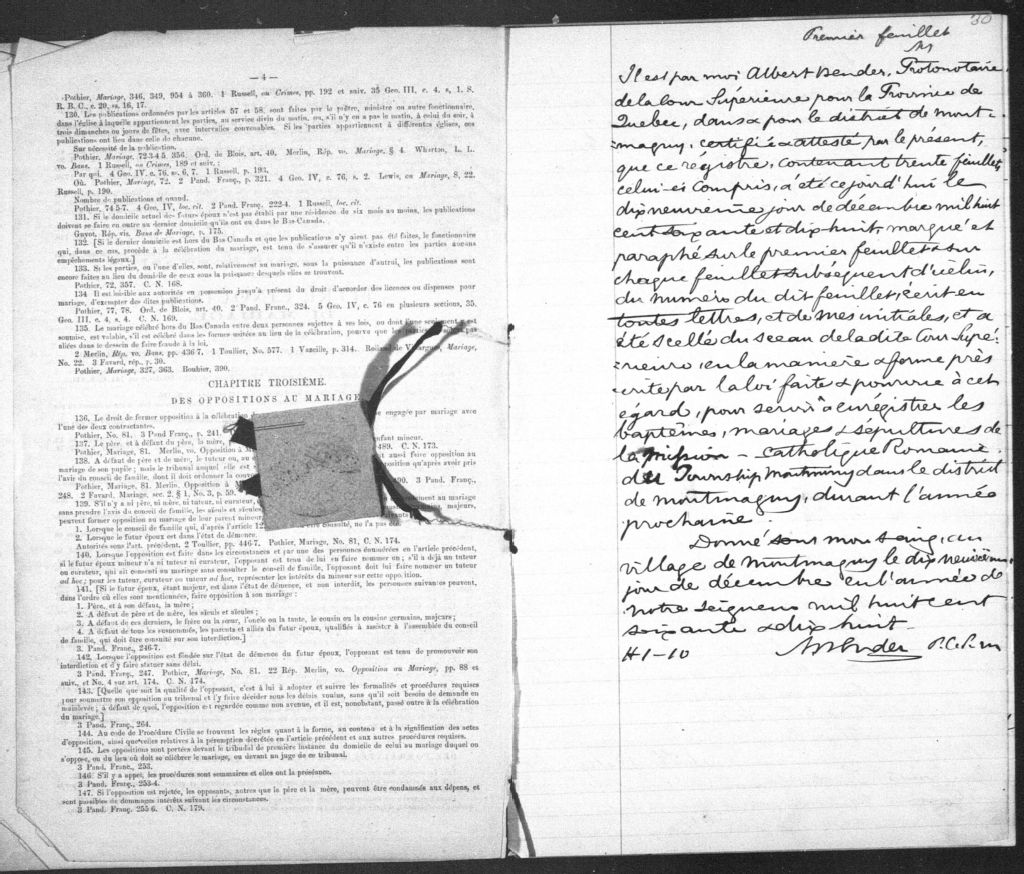 — 4 —
Pothier, Mariage, 346, 349, 954 à 360. 1 Russell, on Crimes, pp. 192 et suiv. 35 Geo. III, c. 4, s. 1. S.
R. B. C., c. 20, ss. 16, 17.
130. Les publications ordonnées par les articles 57 et 58 sont faites par le prêtre, ministre ou autre fonctionnaire,
dans l'église à laquelle appartiennent les parties, au service divin du matin, ou, s'il n'y en a pas le matin, à celui du soir, à
trois dimanches ou jours de fêtes, avec intervalles convenables. Si les parties appartiennent à différentes églises, ces
publications ont lieu dans celle de chacune.
Sur nécessité de la publication.
Pothier, Mariage, 72-3-4-5. 356. Ord. de Blois, art. 40. Merlin, Rép. vo. Mariage, § 4. Wharton, L. L.
vo. Bans. 1 Russell, on Crimes, 189 et suiv.
Par qui. 4 Geo. IV, c. 76, ss. 6, 7. 1 Russell, p. 193.
Où. Pothier, Mariage, 72. 2 Pand. Franç., p. 321. 4 Geo. IV, c. 76, s. 2. Lewis, on Mariage, 8, 22.
Russell, p. 190.
Nombre de publications et quand.
Pothier, 74-5-7. 4 Geo, IV, loc. cit. 2 Pand. Franç. 222-4. 1 Russell, loc. cit.
131. Si le domicile actuel des futurs époux n'est pas établi par une résidence de six mois au moins, les publications
doivent se faire en outre au dernier domicile qu'ils ont eu dans le Bas-Canada.
Guyot, Rép. vis. Bans de Mariage, p. 175.
132. [Si le dernier domicile est hors du Bas Canada et que les publications n'y aient pas été faites, le fonctionnaire
qui, dans ce cas, procède à la célébration du mariage, est tenu de s'assurer qu'il n'existe entre les parties aucuns
empêchements légaux.]
133. Si les parties, ou l'une d'elles, sont, relativement au mariage, sous la puissance d'autrui, les publications sont
encore faites au lieu du domicile de ceux sous la puissance desquels elles se trouvent.
Pothier, 72, 357. C. N. 168.
134. Il est loisible aux autorités en possession jusqu'à présent du droit d'accorder des licences ou dispenses pour
mariage, d'exempter des dites publications.
Pothier, 77, 78. Ord. de Blois, art. 40. 2 Pand. Franc., 324. 5 Geo. IV, c. 76 en plusieurs sections, 35.
Geo. III, c. 4, s. 4. C. N. 169.
135. Le mariage célébré hors du Bas Canada entre deux personnes sujettes à ses lois, ou dont l'une seulement y est
soumise, est valable, s'il est célébré dans les formes usitées au lieu de la célébration, pourvu que les
aliées dans le dessein de faire fraude à la loi.
2 Merlin, Rép. vo. Bans, pp. 436-7. 1 Toullier, No. 577. 1 Vazeille, p. 314. Mariage,
No. 22. 3 Favard, rép., p. 30.
Pothier, Mariage, 327, 363. Bouhier, 390.
CHAPITRE TROISIÈME.
DES OPPOSITIONS AU MARIAGE
136. Le droit de former opposition à la célébration engagée par mariage avec
l'une des deux contractantes.
Pothier, No. 81. 3 Pand Franç., p. 241.
137. Le père, et à défaut du père, la mère, enfant mineur.
Pothier, Mariage, 81. Merlin, vo. Opposition à M 489. C. N. 173.
138. A défaut de père et de mère, le tuteur ou, aussi faire opposition au
mariage de son pupille; mais le tribunal auquel elle est position qu'après avoir pris
l'avis du conseil de famille, dont il doit ordonner la conv
Pothier, Mariage, 81. Merlin. Opposition à 490. 3 Pand. Franç.,
248. 2 Favard, Mariage, sec. 2, § 1, No. 3, p. 59.
139. S'il n'y a ni père, ni mère, ni tuteur, ni curateur, ement au mariage
sans prendre l'avis du conseil de famille, les aïeuls et aïeules majeurs,
peuvent former opposition au mariage de leur parent mineur
1. Lorsque le conseil de famille qui, d'après l'article 12 être consulté, ne l'a pas été.
2. Lorsque le futur époux est dans l'état de démence.
Autorités sous l'art. précédent. 2 Toullier, pp. 446-7. Pothier, Mariage, No. 81, C. N. 174.
140. Lorsque l'opposition est faite dans les circonstances et par une des personnes énumérées en l'article précédent,
si le futur époux mineur n'a ni tuteur ni curateur, l'opposant est tenu de lui en faire nommer un; s'il a déjà un tuteur
ou curateur, qui ait consenti au mariage sans consulter le conseil de famille, l'opposant doit lui faire nommer un tuteur
ad hoc; pour les tuteur, curateur ou tuteur ad hoc, représenter les intérêts du mineur sur cette opposition.
141. [Si le futur époux, étant majeur, est dans l'état de démence, et non interdit, les personnes suivantes peuvent,
dans l'ordre où elles sont mentionnées, faire opposition à son mariage:
1. Père, et à son défaut, la mère;
2. A défaut de père et de mère, les aïeuls et aïeules;
3. A défaut de ces derniers, le frère ou la sœur, l'oncle ou la tante, le cousin ou la cousine germains, majeurs;
4. A défaut de tous les susnommés, les parents et alliés du futur époux, qualifiés à assister à l'assemblée du conseil
de famille, qui doit être consulté sur son interdiction.]
3. Pand. Franç., 246-7.
142. Lorsque l'opposition est fondée sur l'état de démence du futur époux, l'opposant est tenu de promouvoir son
interdiction et d'y faire statuer sans délai.
3 Pand. Franç., 247. Pothier, Mariage, No. 81. 22 Rép. Merlin, vo. Opposition au Mariage, pp. 88 et
suiv., et No. 4 sur art. 174. C. N. 174.
143. [Quelle que soit la qualité de l'opposant, c'est à lui à adopter et suivre les formalités et procédures requises
pour soumettre son opposition au tribunal et l'y faire décider sous les délais voulus, sans qu'il soit besoin de demande en
mainlevée; à défaut de quoi, l'opposition est regardée comme non avenue, et il est, nonobstant, passé outre à la célébration
du mariage.]
3 Pand. Franç., 264.
144. Au code de Procédure Civile se trouvent les règles quant à la forme, au contenu et à la signification des actes
d'opposition, ainsi que celles relatives à la péremption décrétée en l'article précédent et aux autres procédures requises.
145. Les oppositions sont portées devant le tribunal de première instance du domicile de celui au mariage duquel on
s'oppose, ou du lieu où doit se célébrer le mariage, ou devant un juge de ce tribunal.
3 Pand. Franc., 253.
146. S'il y a appel, les procédures sont sommaires et elles ont la préséance.
3 Pand. Franç., 253-4.
147. Si l'opposition est rejetée, les opposants, autres que le père et la mère, peuvent être condamnés aux dépens, et
sont passibles de dommages intérêts suivant les circonstances.
3 Pand. Franç. 255 6. C. N. 179.
30
Premier feuillet
Il est par moi Albert Bender, Protonotaire
de la Cour Supérieure pour la Province de
Quebec, dans & pour le district de Mont=
=magny, certifié & attesté par le présent,
que ce registre, contenant trente feuillets,
celui-ci compris, a été ce jourd'hui le
dix neuvième jour de décembre mil huit
cent soixante et dix-huit, marqué et
paraphé sur le premier feuillet & sur
chaque feuillet subséquent d'icelui,
du numéro du dit feuillet, écrit en
toutes lettres, et de mes initiales, et a
été scellé du sceau de la dite Cour Supé=
=rieure, en la manière & forme pres
crite par la loi faite & pourvue à cet
égard, pour servir à enrégistrer les
baptêmes, mariages & sépultures de
la Mission – Catholique Romaine
du Township Montminy dans le district
de Montmagny, durant l'année
prochaine.
Donné sous mon seing, au
village de Montmagny le dix neuvième
jour de décembre en l'année de
notre Seigneur mil huit cent
soixante & dix huit.
H 1-10 A Bender P.C.S.M